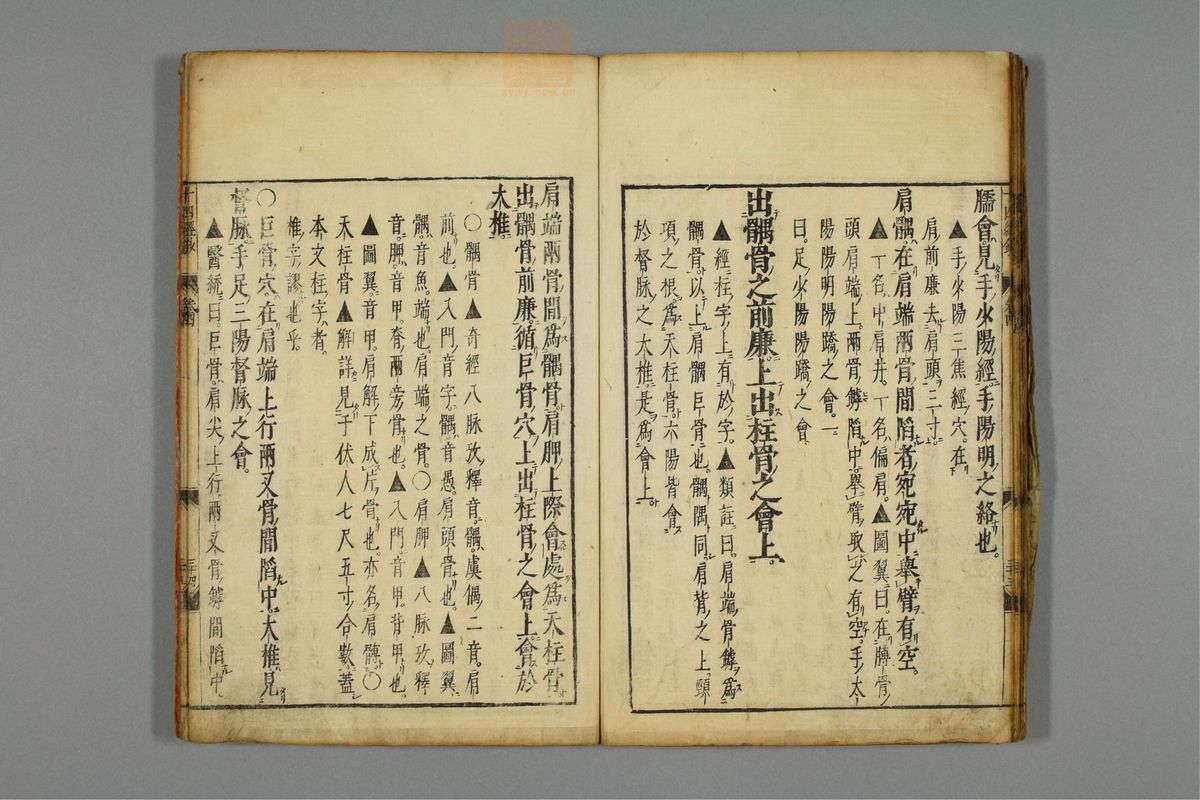 臑會見手少陽經手陽明之絡也。
▲手少陽三焦經穴。在
肩前廉去肩頭三寸。
肩髃在肩端兩骨間陷者宛宛中舉臂有空。
▲一名中肩井。一名偏肩。▲圖翼曰。在膊骨
頭肩端上。兩骨罅陷中。舉臂取之有空。手太
陽陽明陽蹻之會。一
曰。足少陽陽蹻之會。
出髃骨之前廉上出柱骨之會上。
▲經柱字上有於字。▲類註曰。肩端骨罅爲
髃骨。以上肩髃巨骨也。髃隅同。肩背之上。頸
項之根爲天柱骨。六陽皆會
於督脉之大椎。是爲會上。
肩端兩骨間爲髃骨肩胛上際會處爲天柱骨
出髃骨前廉循巨骨穴上出柱骨之會上會於
大椎。
〇髃骨▲奇經八脉攷釋音。髃虞偶二音。肩
前也。▲入門音字。髃音愚。肩頭骨也。▲圖翼
髃。音魚。端也。肩端之骨。〇肩胛▲八脉攷釋
音。胛音甲。脊兩旁骨也。▲入門。音甲。背甲也。
▲圖翼。音甲。肩解下成片骨也。亦名肩髆。〇
天柱骨▲解詳見于伏人七尺五寸合數。蓋
本文柱字者。
椎字謬也乎。
〇巨骨穴。在肩端上行兩叉骨間陷中。大椎見
督脉。手足三陽督脉之會。
▲醫統曰。巨骨。肩尖上行。兩叉骨罅間陷中。